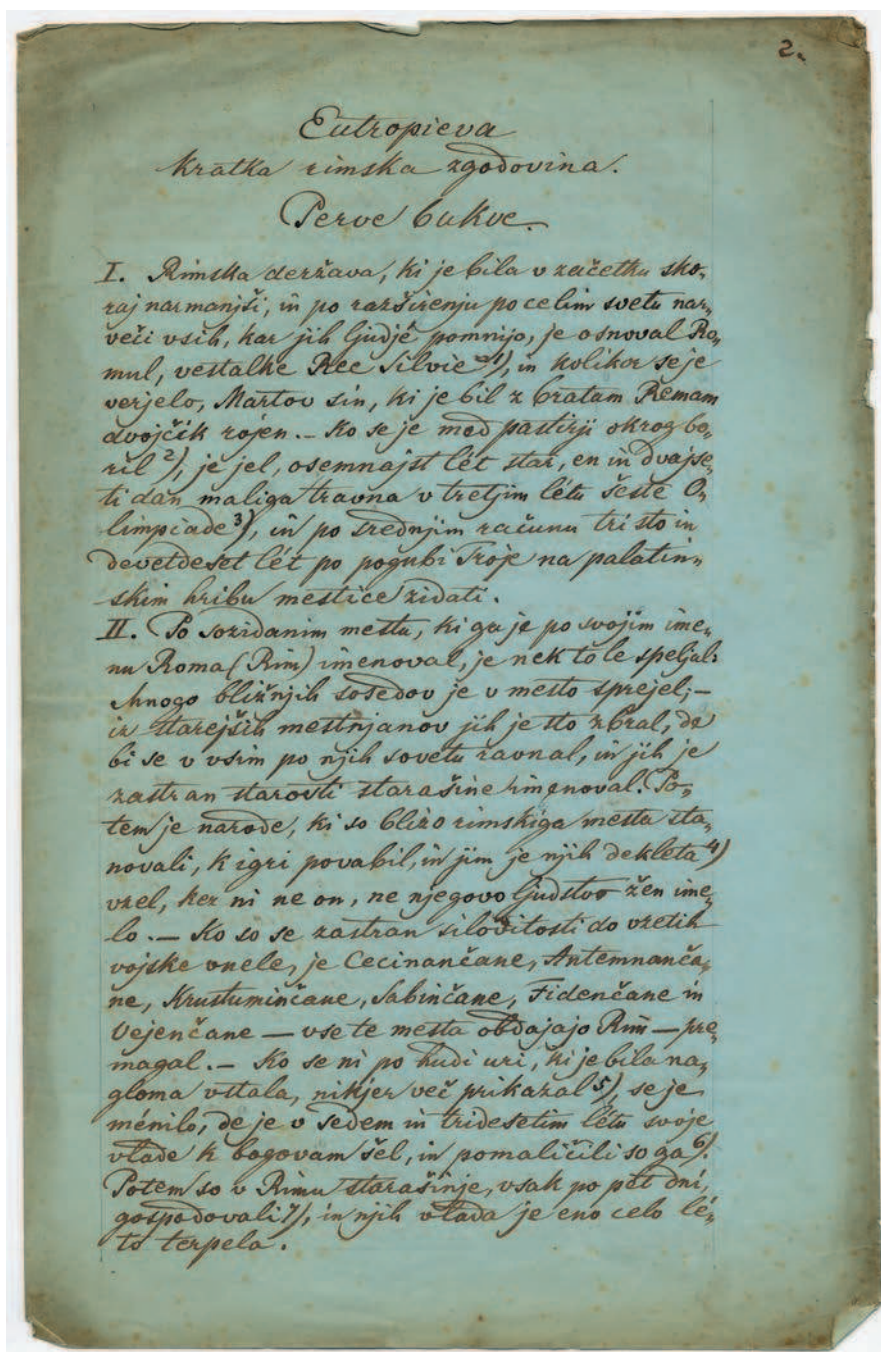 2.
Eutropieva
kratka rimska zgodovina.
Perve bukve.
I. Rimska deržava, ki je bila v začetku sko„
raj narmanjši, in po razširenju po celim svetu nar„
veči vsih, kar jih ljudjé pomnijo, je osnoval Ro„
mul, vestalke Ree Silvie 1), in kolikor se je
verjelo, Martov sin, ki je bil z bratam Remam
dvojčik rojen. – Ko se je med pastirji okrog bo„
ril 2), je jel, osemnajst lét star, en in dvajse„
ti dan maliga travna v tretjim létu šeste O„
limpiade 3), in po srednjim računu tri sto in
devetdeset lét po pogubi Troje na palatin„
skim hribu mestice zidati.
II. Po sozidanim mestu, ki ga je po svojim ime„
nu Roma (Rim) imenoval, je nek tole speljal:
Mnogo bližnjih sosedov je v mesto sprejel; –
iz starejših mestnjanov jih je sto zbral, de
bi se v vsim po njih sovetu ravnal, in jih je
zastran starosti starašine imenoval. Po„
tem je narode, ki so blizo rimskiga mesta sta„
novali, k igri povabil, in jim je njih dekleta 4)
vzel, ker ni ne on, ne njegovo ljudstvo žen ime„
lo. — Ko so se zastran silovitosti do vzetih
vojske vnele, je Cecinančane, Antemnanča„
ne, Krustuminčane, Sabinčane, Fidenčane in
Vejenčane — vse te mesta obdajajo Rim — pre„
magal. – Ko se ni po hudi uri, ki je bila na„
gloma vstala, nikjer več prikazal 5), se je
ménilo, de je v sedem in tridesetim létu svoje
vlade k bogovam šel, in pomaličili so ga 6).
Potem so v Rimu starašinje, vsak po pet dni,
gospodovali 7), in njih vlada je eno celo lé„
to terpela.